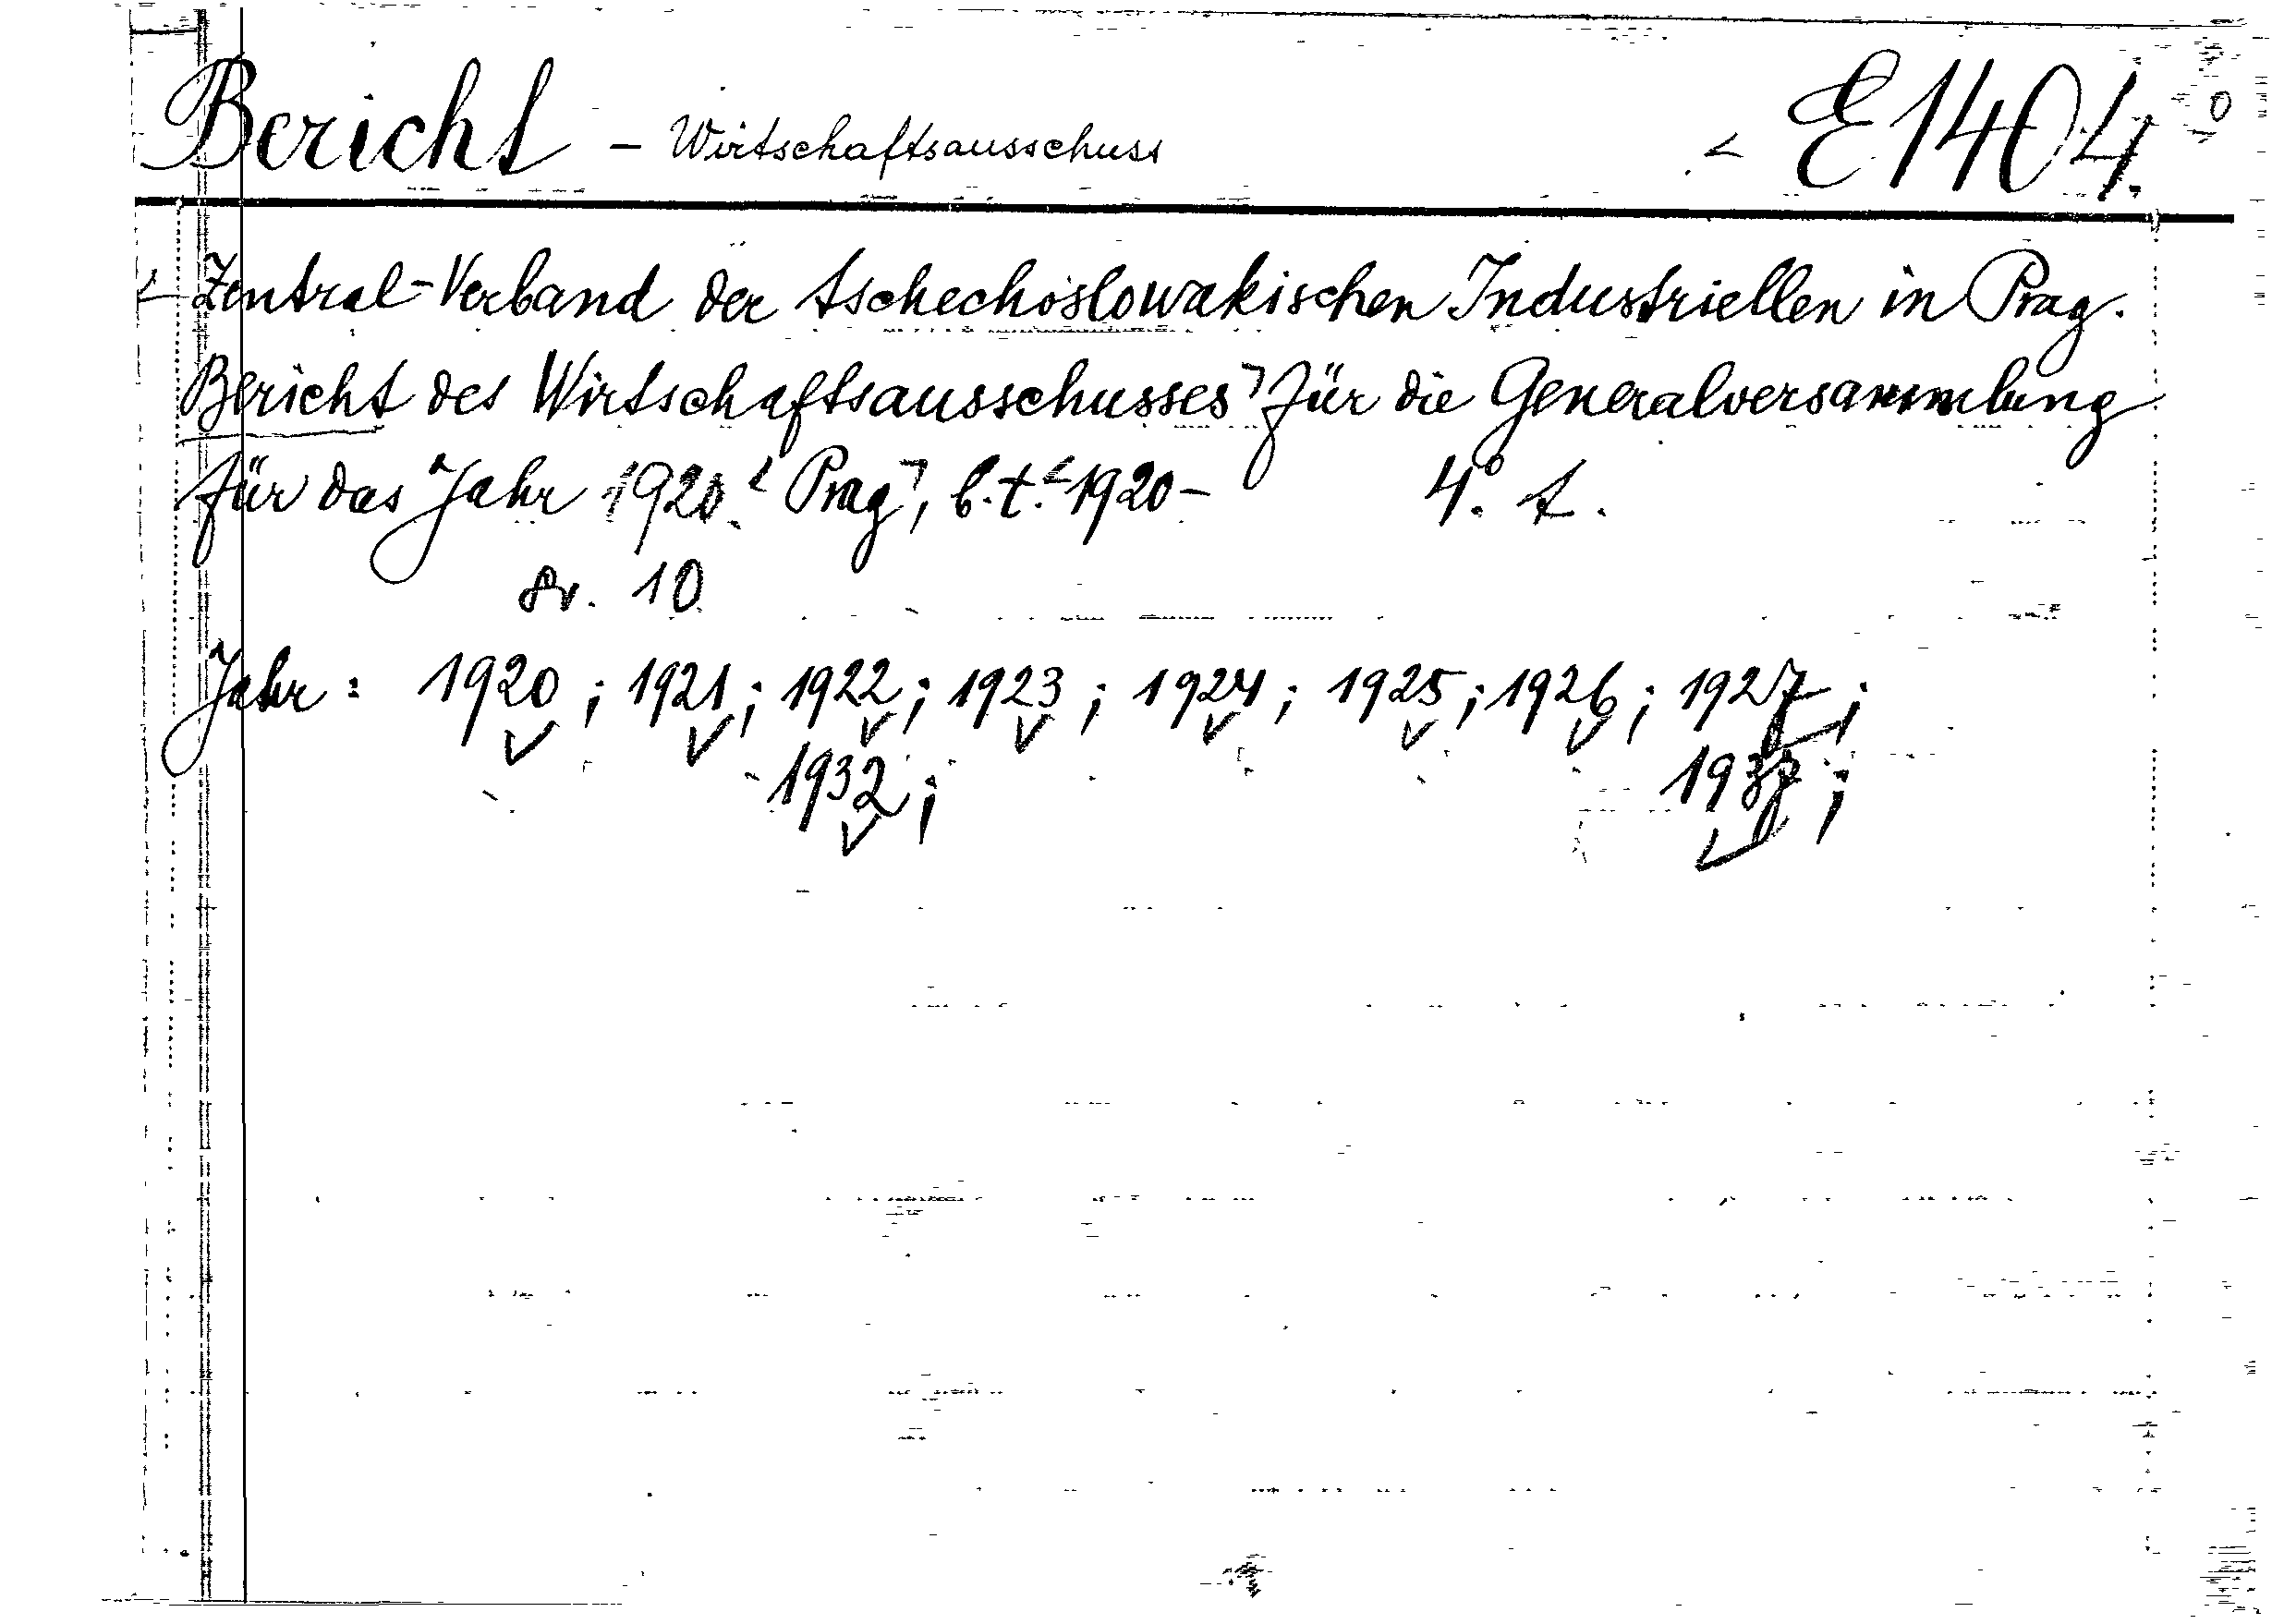 Bericht - Wirtschaftsausschuss E1404.
Zentral-Verband der tschechoslowakischen Industriellen in Prag.
Bericht des Wirtschaftsausschusses für die Generalversammlung
für das Jahr 1920. Prag, b.t. 1920- 4°. t.
sv. 10
Jahr: 1920; 1921; 1922; 1923; 1924; 1925; 1926; 1927;
1932; 1937;